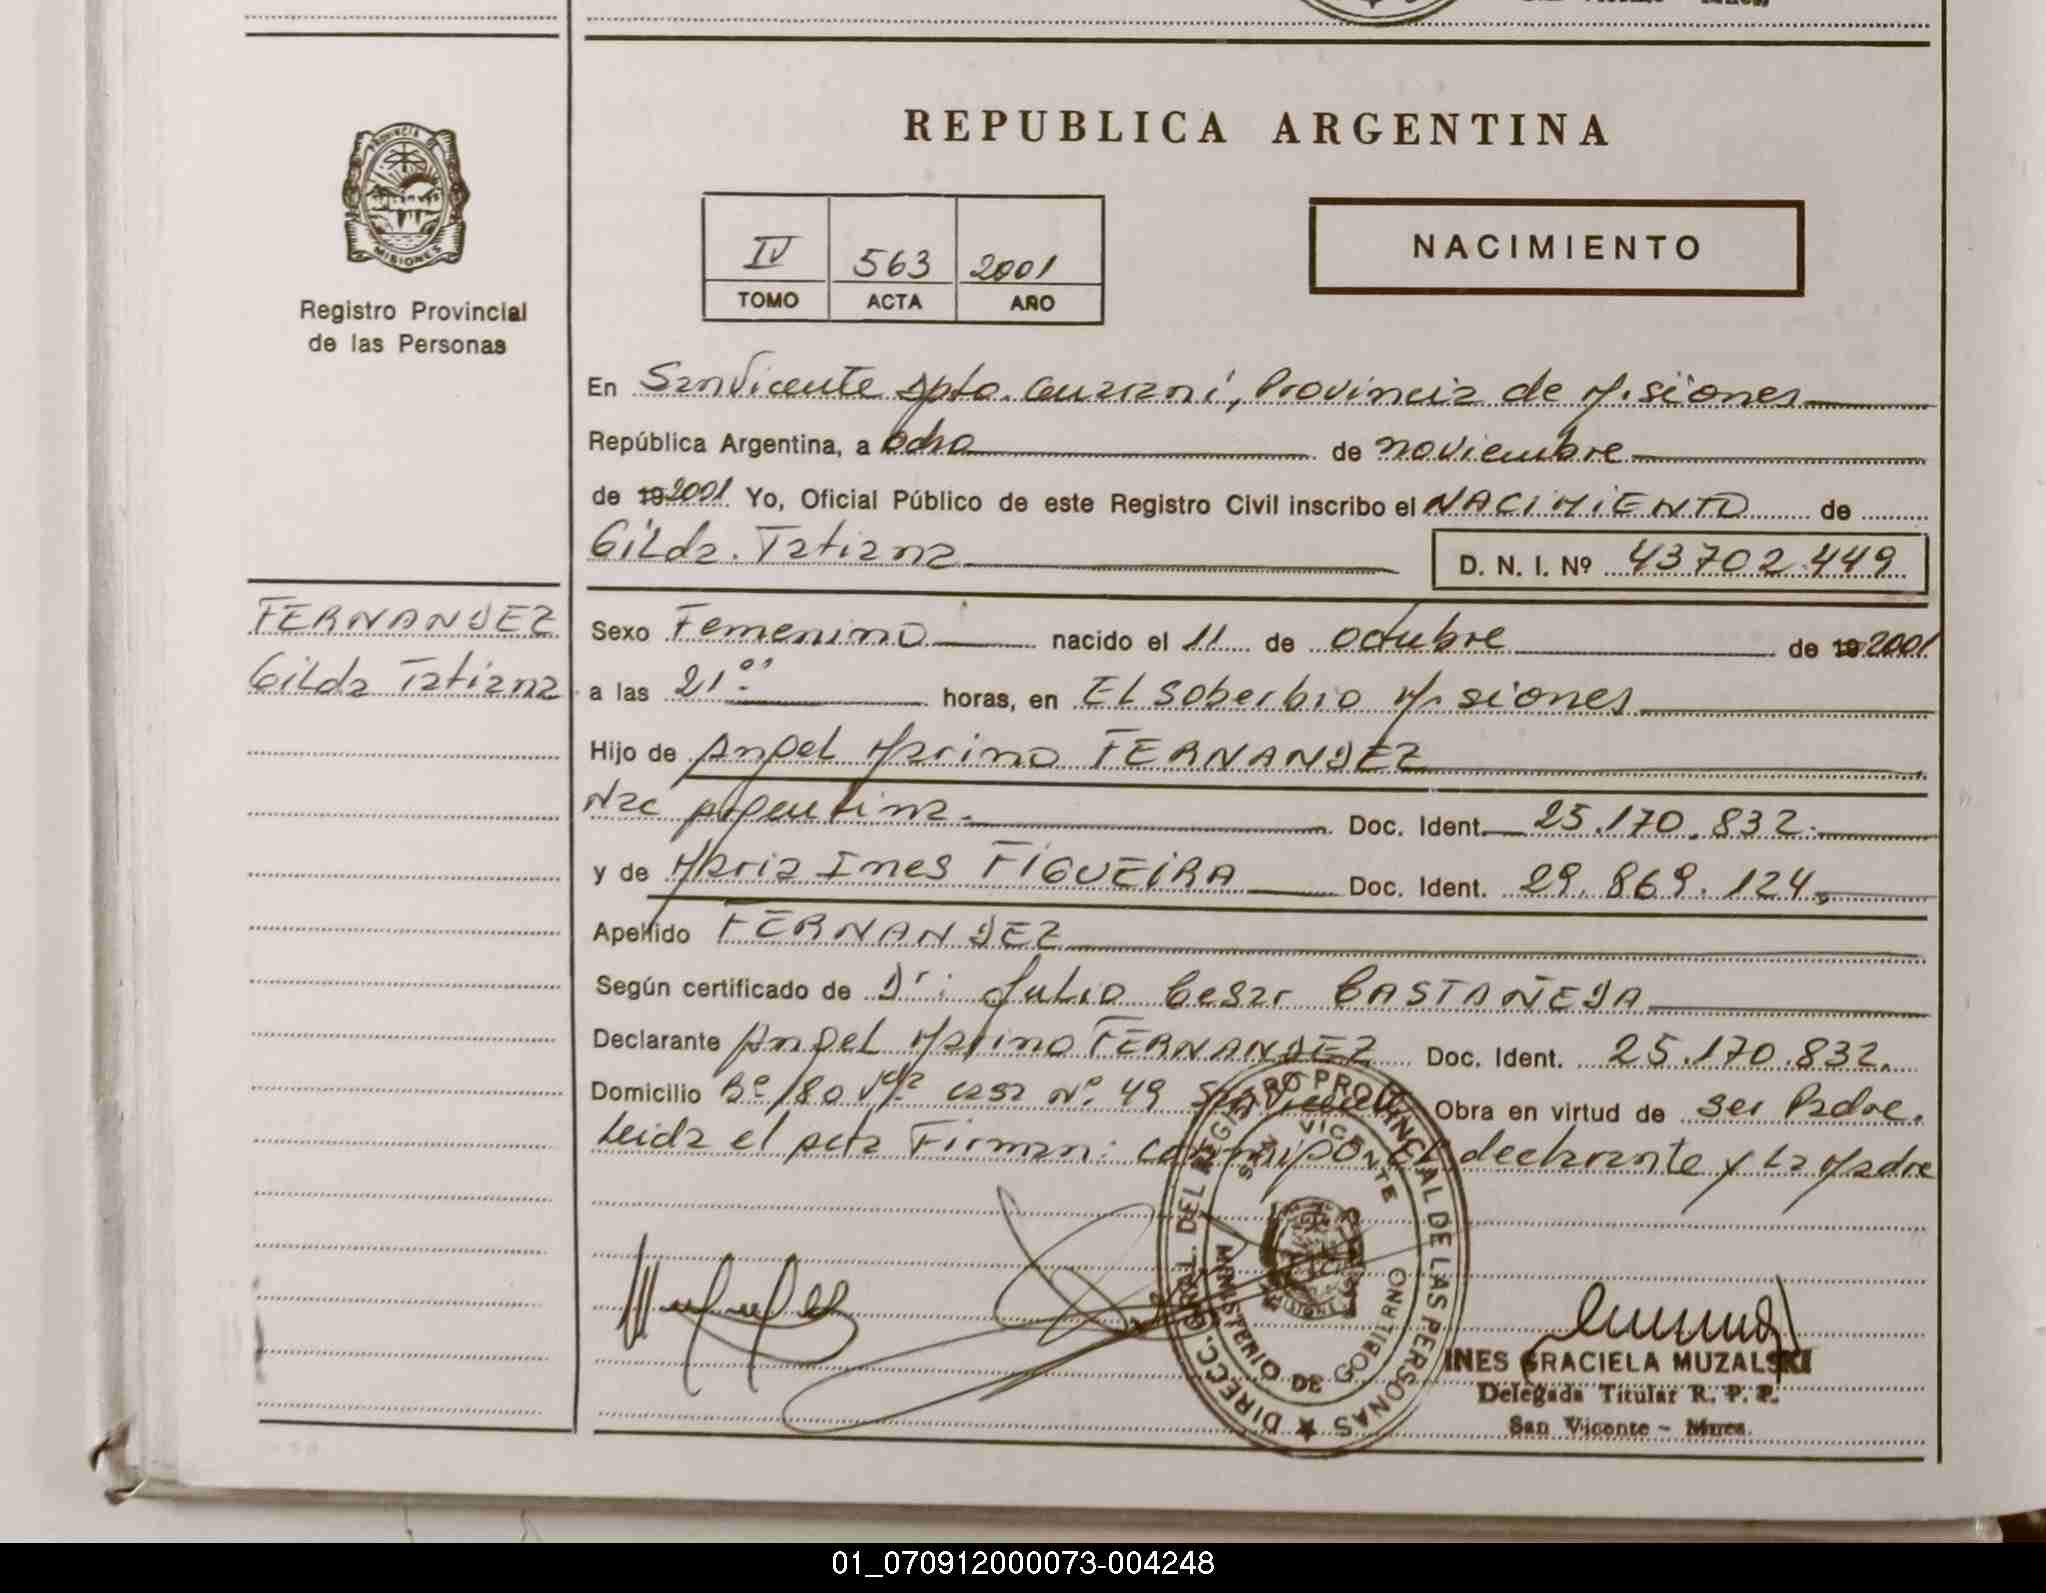 REPUBLICA ARGENTINA
PROVINCIA DE
MISIONES
Registro Provincial
de las Personas
IV 563 2001
TOMO ACTA AÑO
NACIMIENTO
En San Vicente Dpto. Guaraní, Provincia de Misiones
República Argentina, a ocho de noviembre
de 19 2001 Yo, Oficial Público de este Registro Civil inscribo el NACIMIENTO de
Gilda Tatiana D. N. I. Nº 43702.449
FERNANDEZ
Gilda Tatiana
Sexo Femenino nacido el 11 de octubre de 19 2001
a las 21:00 horas, en El Soberbio Misiones
Hijo de Angel Marino FERNANDEZ
Nac Argentina. Doc. Ident. 25.170.832.
y de Maria Ines FIGUEIRA Doc. Ident. 29.869.124.
Apellido FERNANDEZ
Según certificado de Dr: Julio Cesar CASTAÑEDA
Declarante Angel Marino FERNANDEZ Doc. Ident. 25.170.832.
Domicilio Bº 180 casa Nº 49 San Vicente Obra en virtud de ser Padre.
Leida el acta Firman: conmigo el declarante y la Madre
DIRECC. GRAL. DEL REGISTRO PROVINCIAL DE LAS PERSONAS
SAN VICENTE
MINISTERIO DE GOBIERNO
INES GRACIELA MUZALSKI
Delegada Titular R. P. P.
San Vicente - Mnes.
01_070912000073-004248